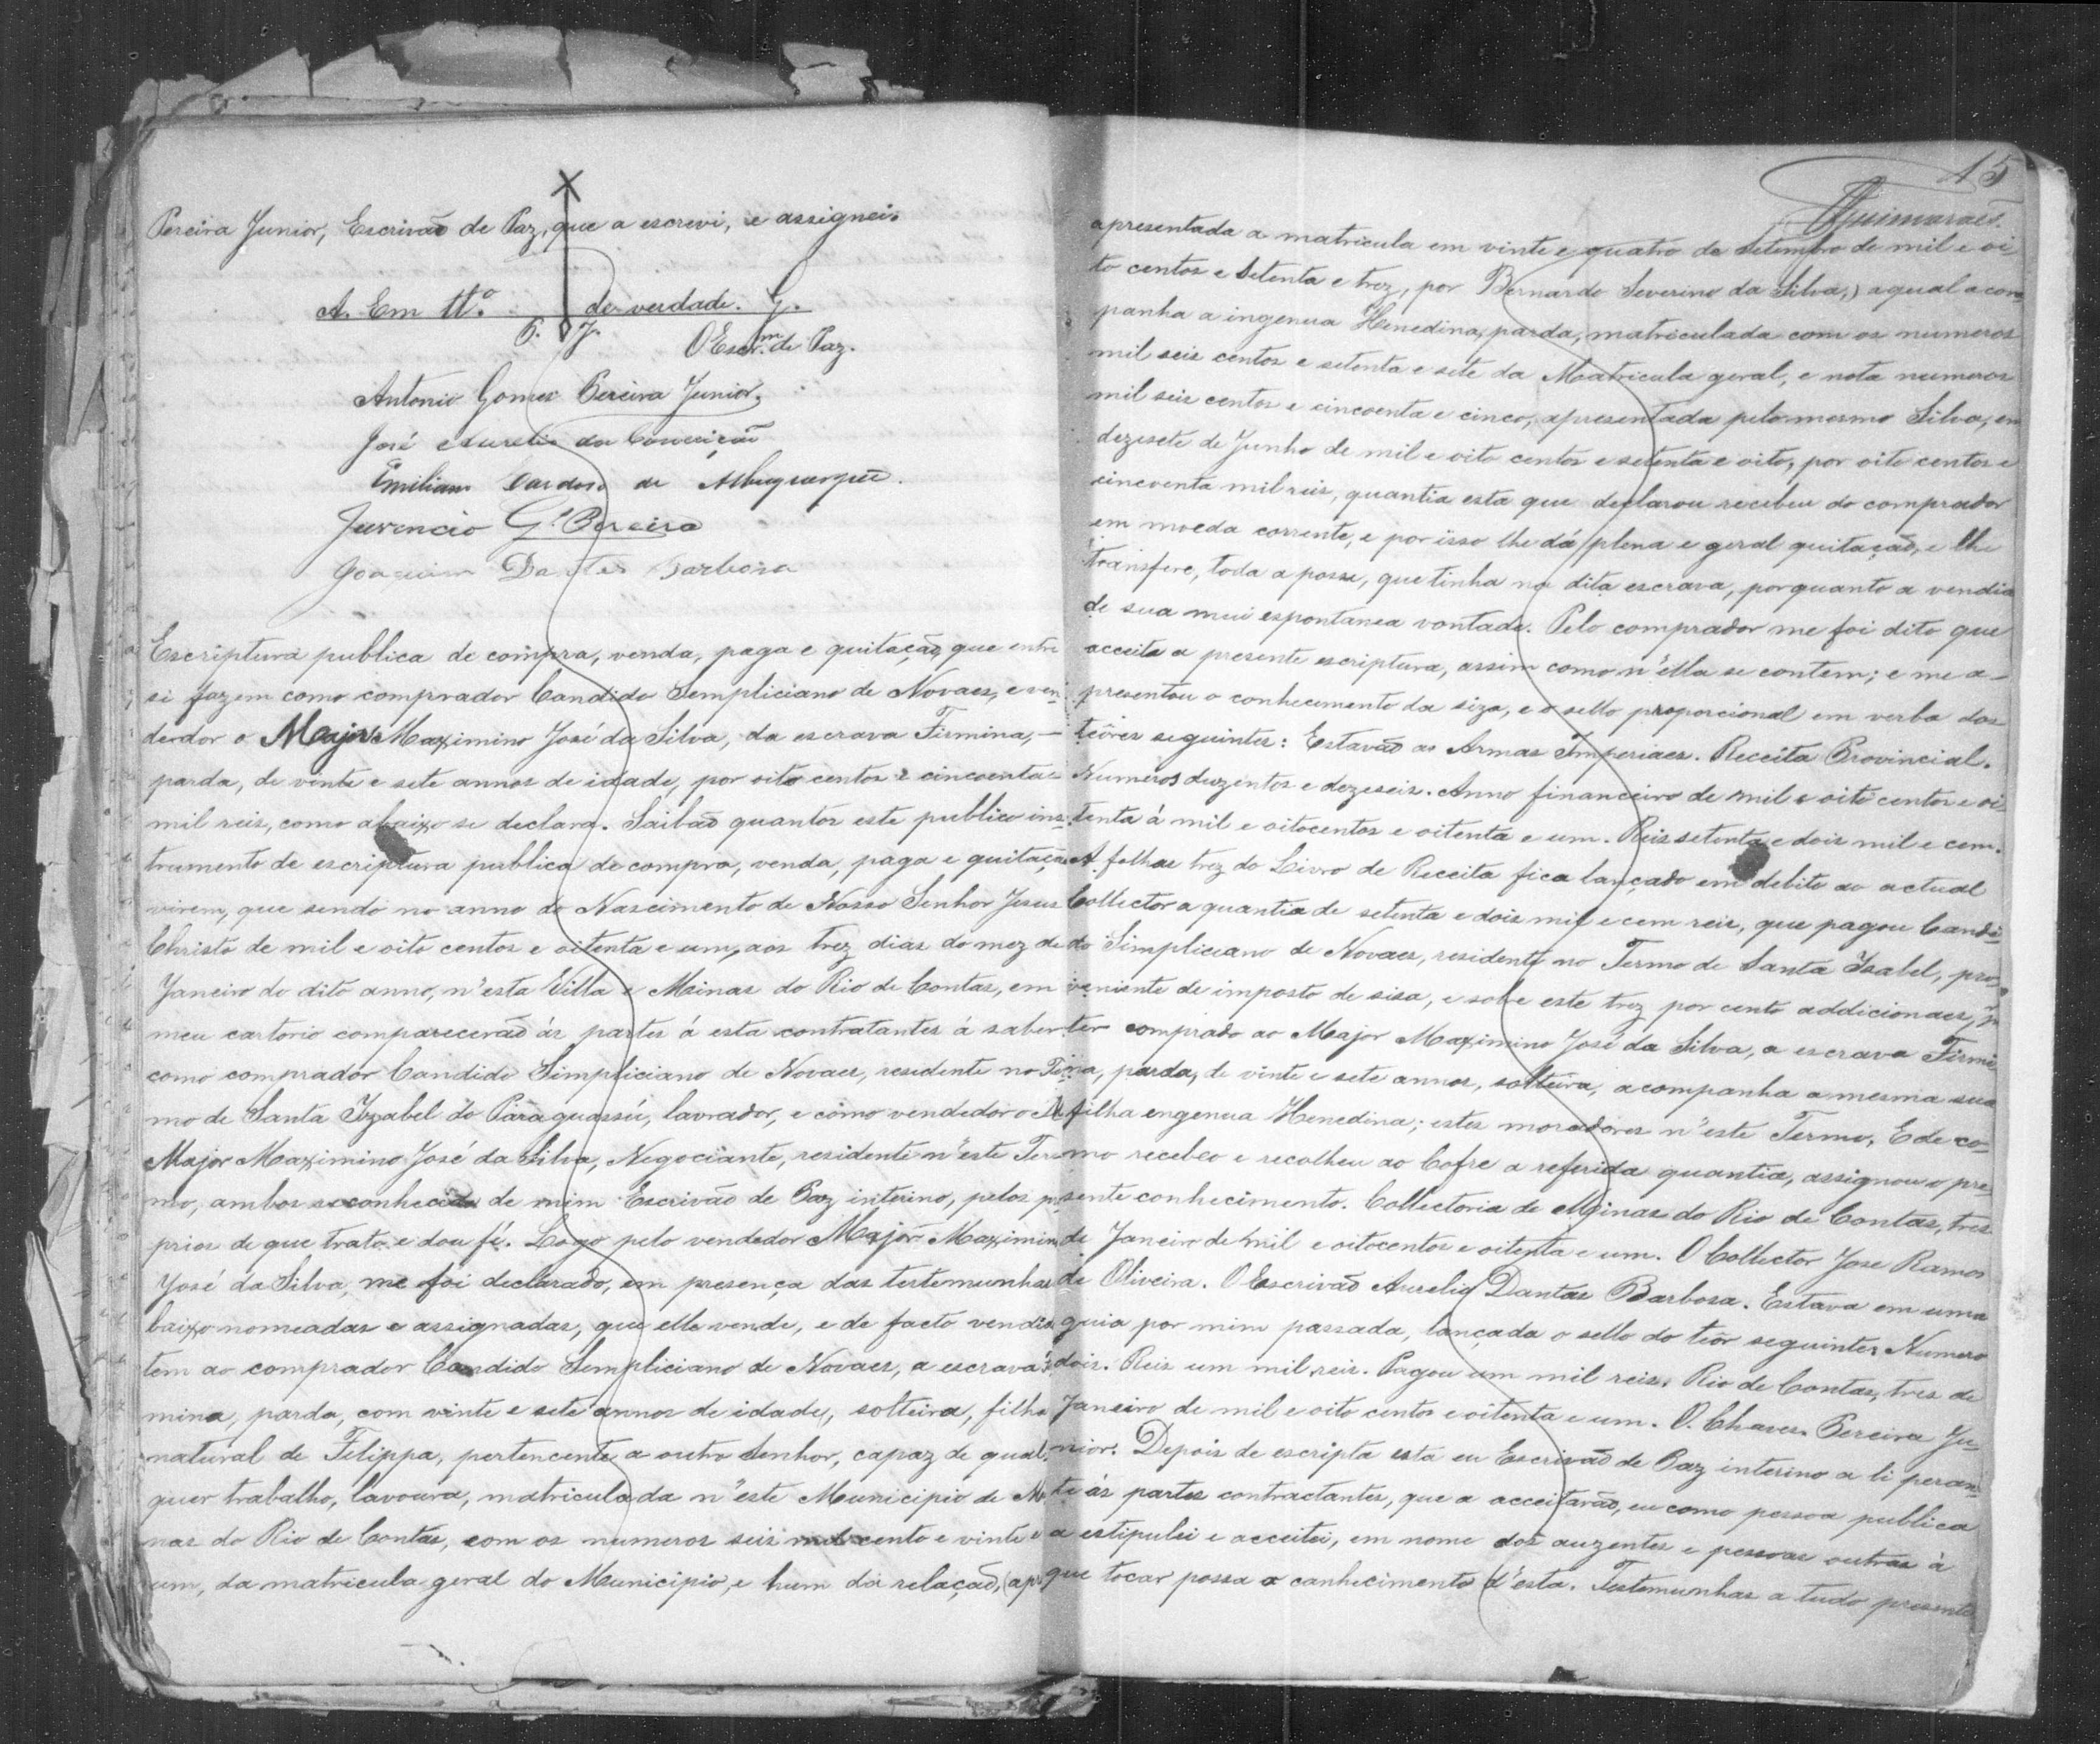 Pereira Junior, Escrivaõ de Paz, que a escrevi, e assignei.
A. Em tt.º de verdade. G.
P. J.
O Escr.m de Paz.
Antonio Gomes Pereira Junior.
José Aurelio da Conceição
Emiliano Cardoso de Albuquerque.
Juvencio G. Pereira
Joaquim Dantas Barbosa
Escriptura publica de compra, venda, paga e quitação, que entre
si fazem como comprador Candido Sempliciano de Novaes, e ven-
dedor o Major Maximino José da Silva, da escrava Firmina, —
parda, de vinte e sete annos de idade, por oito centos e cincoenta
mil reis, como abaixo se declara. Saibaõ quantos este publico ins-
trumento de escriptura publica de compra, venda, paga e quitação
virem, que sendo no anno do Nascimento de Nosso Senhor Jesus
Christo de mil e oito centos e oitenta e um, aos trez dias do mez de
Janeiro do dito anno, n'esta Villa e Minas do Rio de Contas, em
meu cartorio comparecerão ás partes á esta contratantes á saber
como comprador Candido Simpliciano de Novaes, residente no Ter-
mo de Santa Izabel do Paraguassú, lavrador, e como vendedor o
Major Maximino José da Silva, Negociante, residente n'este Ter-
mo, ambos reconhecidos de mim Escrivaõ de Paz interino, pelos pro-
prios de que trato e dou fé. Logo pelo vendedor Major Maximino
José da Silva, me foi declarado, em presença das testemunhas
baixo nomeadas e assignadas, que elle vende, e de facto vendido
tem ao comprador Candido Sempliciano de Novaes, a escrava Fir-
mina, parda, com vinte e sete annos de idade, solteira, filha
natural de Filippa, pertencente a outro Senhor, capaz de qual-
quer trabalho, lavoura, matriculada n'este Municipio de Mi-
nas do Rio de Contas, com os numeros seis mil cento e vinte e
um, da matricula geral do Municipio, e hum da relação, (apre
15
Guimarães.
apresentada a matricula em vinte e quatro de Setembro de mil e oi-
to centos e setenta e trez, por Bernardo Severino da Silva,) a qual acom
panha a ingenua Henedina, parda, matriculada com os numeros
mil seis centos e setenta e sete da Matricula geral, e nota numeros
mil seis centos e cincoenta e cinco, apresentada pelo mesmo Silva, em
dezesete de Junho de mil e oito centos e setenta e oito, por oito centos e
cincoenta mil reis, quantia esta que declarou recebeu do comprador
em moeda corrente, e por isso lhe dá plena e geral quitação, e lhe
transfere, toda a posse, que tinha na dita escrava, porquanto a vendia
de sua mui espontanea vontade. Pelo comprador me foi dito que
acceita a presente escriptura, assim como n'ella se contem; e me a-
presentou o conhecimento da siza, e o sello proporcional em verba dos
teôres seguintes: Estavaõ as Armas Imperiaes. Receita Provincial.
Numeros duzentos e dezeseis. Anno financeiro de mil e oito centos e oi
tenta á mil e oitocentos e oitenta e um. Reis setenta e dois mil e cem.
A folhas trez do Livro de Receita fica lançado em debito ao actual
Collector a quantia de setenta e dois mil e cem reis, que pagou Candi-
do Simpliciano de Novaes, residente no Termo de Santa Isabel, pro-
veniente de imposto de sisa, e sobre este trez por cento addicionaes, p.r
ter comprado ao Major Maximino José da Silva, a escrava Firmi
na, parda, de vinte e sete annos, solteira, acompanha a mesma sua
filha engenua Henedina; estes moradores n'este Termo. E de co-
mo recebeo e recolheu ao Cofre a referida quantia, assignou o pre-
sente conhecimento. Collectoria de Minas do Rio de Contas, tres
de Janeiro de mil e oitocentos e oitenta e um. O Collector Jose Ramos
de Oliveira. O Escrivaõ Aurelio Dantas Barbosa. Estava em uma
guia por mim passada, lançada o sello do teôr seguinte. Numero
dois. Reis um mil reis. Pagou um mil reis. Rio de Contas, tres de
Janeiro de mil e oito centos e oitenta e um. O. Chaves. Pereira Ju-
nior. Depois de escripta esta eu Escrivaõ de Paz interino a li peran-
te ás partes contractantes, que a acceitaraõ, eu como pessoa publica
a estipulei e acceitei, em nome dos auzentes e pessoas outras á
que tocar possa o conhecimento d'esta. Testemunhas a tudo presente